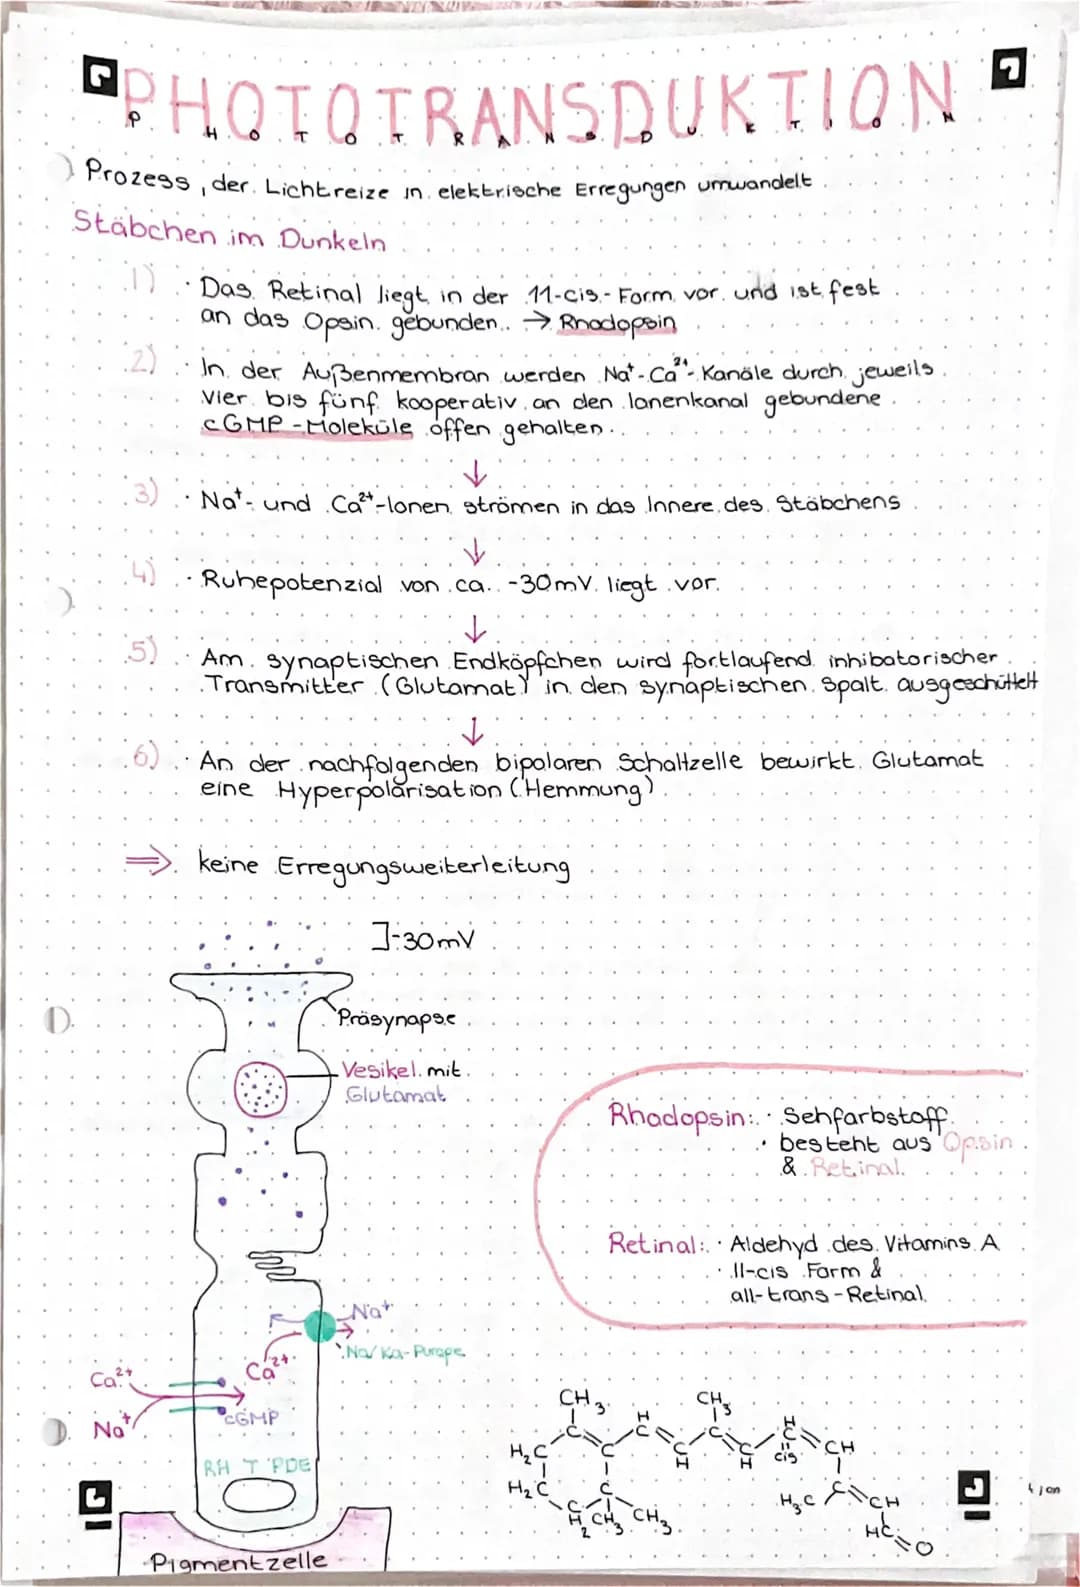 PHOTOTRANSDUKTION
PHOTOTRANSDUKTION
Prozess, der Lichtreize in elektrische Erregungen umwandelt
Stäbchen im Dunkeln
1) · Das Retinal liegt in der 11-cis-Form vor und ist fest
an das Opsin gebunden. → Rhodopsin
2) · In der Außenmembran werden Na⁺-Ca²⁺-Kanäle durch jeweils
vier bis fünf kooperativ an den Ionenkanal gebundene
cGMP-Moleküle offen gehalten.
↓
3) · Na⁺- und Ca²⁺-Ionen strömen in das Innere des Stäbchens
↓
4) · Ruhepotenzial von ca. -30mV liegt vor.
↓
5) · Am synaptischen Endköpfchen wird fortlaufend inhibatorischer
Transmitter (Glutamat) in den synaptischen Spalt ausgeschüttelt
↓
6) · An der nachfolgenden bipolaren Schaltzelle bewirkt Glutamat
eine Hyperpolarisation (Hemmung)
⇒ keine Erregungsweiterleitung
]-30mV
Präsynapse
Vesikel mit
Glutamat
Rhodopsin: · Sehfarbstoff
· besteht aus Opsin
& Retinal
Retinal: · Aldehyd des Vitamins A
· 11-cis Form &
all-trans-Retinal
Na⁺
Na/Ka-Pumpe
Ca²⁺
Ca²⁺
Na⁺
cGMP
RH T PDE
Pigmentzelle
CH₃
CH₃
H
H
C
C
C
C
C
C
CH
H₂C
C
C
H
C
H
cis
H₂C
C
H₃C
C
CH
C
H₂
CH₃
CH₃
HC
O